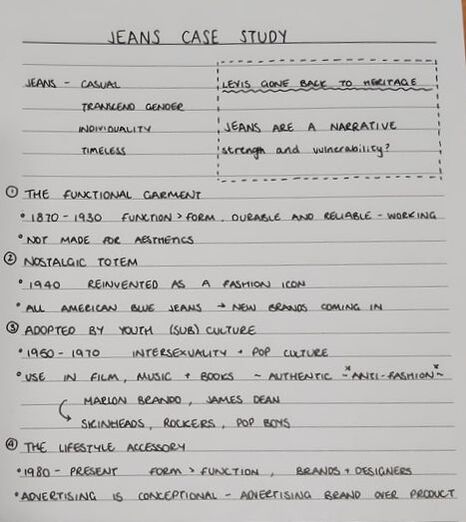 JEANS CASE STUDY
JEANS - CASUAL
TRANSCEND GENDER
INDIVIDUALITY
TIMELESS
LEVIS GONE BACK TO HERITAGE
JEANS ARE A NARRATIVE
strength and vulnerability?
① THE FUNCTIONAL GARMENT
• 1870 - 1930 FUNCTION > FORM, DURABLE AND RELIABLE - WORKING
• NOT MADE FOR AESTHETICS
② NOSTALGIC TOTEM
• 1940 REINVENTED AS A FASHION ICON
• ALL AMERICAN BLUE JEANS → NEW BRANDS COMING IN
③ ADOPTED BY YOUTH (SUB) CULTURE
• 1950 - 1970 INTERSEXUALITY + POP CULTURE
• USE IN FILM, MUSIC + BOOKS ~ AUTHENTIC ~*ANTI-FASHION*~
MARLON BRANDO, JAMES DEAN
SKINHEADS, ROCKERS, POP BOYS
④ THE LIFESTYLE ACCESSORY
• 1980 - PRESENT FORM > FUNCTION, BRANDS + DESIGNERS
• ADVERTISING IS CONCEPTUAL - ADVERTISING BRAND OVER PRODUCT